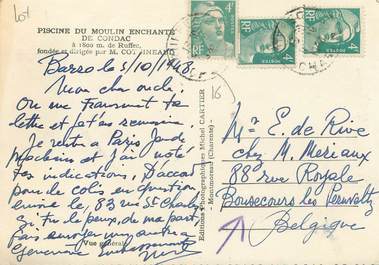 lot
PISCINE DU MOULIN ENCHANTE
DE CONDAC
à 1800 m. de Ruffec,
fondée et dirigée par M. COTHINEAU
Barro le 5/10/1948
Mon cher oncle,
On me transmet ta
lettre et j'ai
Je rentre à Paris
et j'ai noté
tes indications, D'accord
pour le colis en question
envoie le, 83 rue St Charles
si tu le peux, de ma part
Vue générale
16
Editions Photographiques Michel CARTIER
- Montmoreau (Charente) -
4F
RF
POSTES
4F
RF
POSTES
4F
RF
POSTES
Mr E. de Rive
chez M. Meriaux
88 rue Royale
Bonsecours les Peruwelz
Belgique